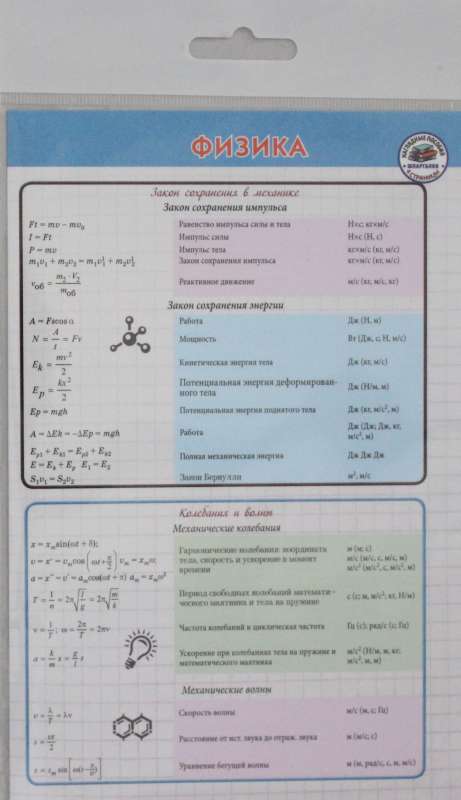 ФИЗИКА
НАГЛЯДНЫЕ ПОСОБИЯ
ШПАРГАЛКИ
4 СТРАНИЦЫ
Закон сохранения в механике
Закон сохранения импульса
Ft = mv − mv₀ Равенство импульса силы и тела Н×с; кг×м/с
I = Ft Импульс силы Н×с (Н, с)
P = mv Импульс тела кг×м/с (кг, м/с)
m₁v₁ + m₂v₂ = m₁v₁¹ + m₂v₂¹ Закон сохранения импульса кг×м/с (кг, м/с)
v_об = m₂ · V₂ / m_об Реактивное движение м/с (кг, м/с, кг)
Закон сохранения энергии
A = Fscos α Работа Дж (Н, м)
N = A/t = Fv Мощность Вт (Дж, с; Н, м/с)
E_k = mv²/2 Кинетическая энергия тела Дж (кг, м/с)
E_p = kx²/2 Потенциальная энергия деформирован-
ного тела Дж (Н/м, м)
Ep = mgh Потенциальная энергия поднятого тела Дж (кг, м/с², м)
A = ΔEk = −ΔEp = mgh Работа Дж (Дж; Дж, кг,
м/с², м)
E_p1 + E_k1 = E_p2 + E_k2
E = E_k + E_p E₁ = E₂ Полная механическая энергия Дж Дж Дж
S₁v₁ = S₂v₂ Закон Бернулли м², м/с
Колебания и волны
Механические колебания
x = x_m sin(ωt + δ); Гармонические колебания: координата м (м; с)
тела, скорость и ускорение в момент м/с (м/с, с, м/с, м)
времени м/с² (м/с², с, м/с², м)
T = 1/n = 2π√(l/g) = 2π√(m/k) Период свободных колебаний математи-
ческого маятника и тела на пружине с (с; м, м/с²; кг, Н/м)
v = 1/T; ω = 2π/T = 2πv Частота колебаний и циклическая частота Гц (с); рад/с (с; Гц)
a = k/m x = g/l x Ускорение при колебаниях тела на пружине и м/с² (Н/м, м, кг;
математического маятника м/с², м, м)
Механические волны
v = λ/T = λv Скорость волны м/с (м, с; Гц)
s = vt/2 Расстояние от ист. звука до отраж. звука м (м/с; с)
Уравнение бегущей волны м (м, рад/с, с, м, м/с)